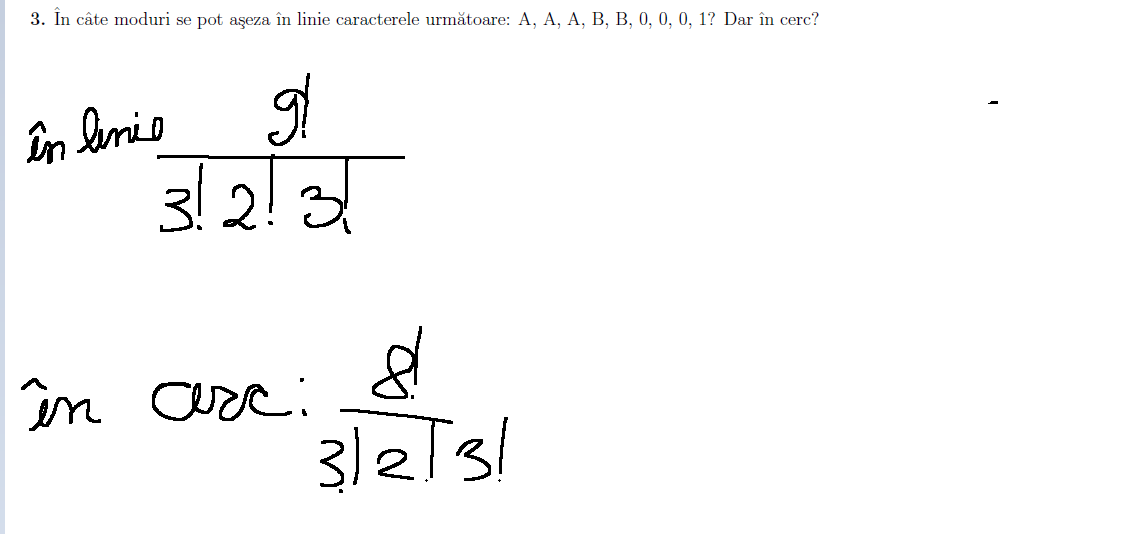 3. În câte moduri se pot aşeza în linie caracterele următoare: A, A, A, B, B, 0, 0, 0, 1? Dar în cerc?
în linie 9!
3! 2! 3!
în cerc: 8!
3! 2! 3!